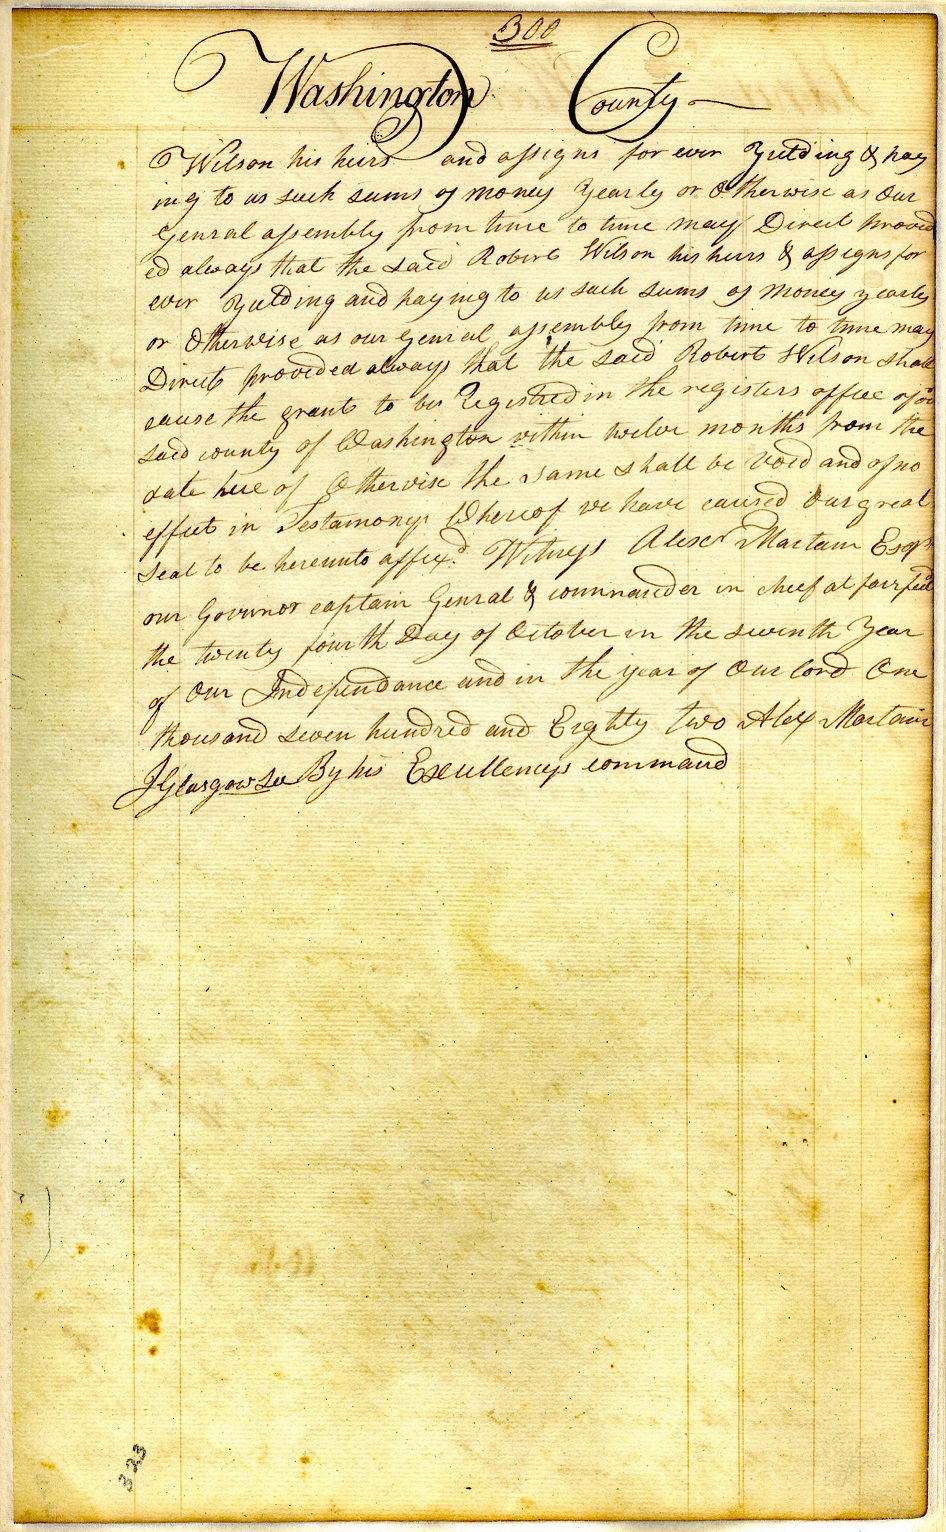 300
Washington County
Wilson his heirs and assigns for ever Yeilding & pay
ing to us such sums of money Yearly or Otherwise as Our
Genral assembly from time to time may Direct provid
ed always that the said Robert Wilson his heirs & assigns for
ever Yeilding and paying to us such sums of money yearly
or Otherwise as our Genral assembly from time to time may
Direct provided always that the said Robert Wilson shall
cause the grant to be Registred in the registers office of our
said county of Washington within twelve months from the
date here of Otherwise the same shall be void and of no
effect in Testamony Whereof we have caused Our great
seal to be hereunto affixd. Witness Alexr Martain Esqr
our Governor captain Genral & commander in cheif at fairfield
the twenty fourth Day of October in the seventh Year
of Our Independance and in the year of Our lord One
thousand seven hundred and Eighty two Alex Martain
J Glasgow Sec By his Excellencys command
323